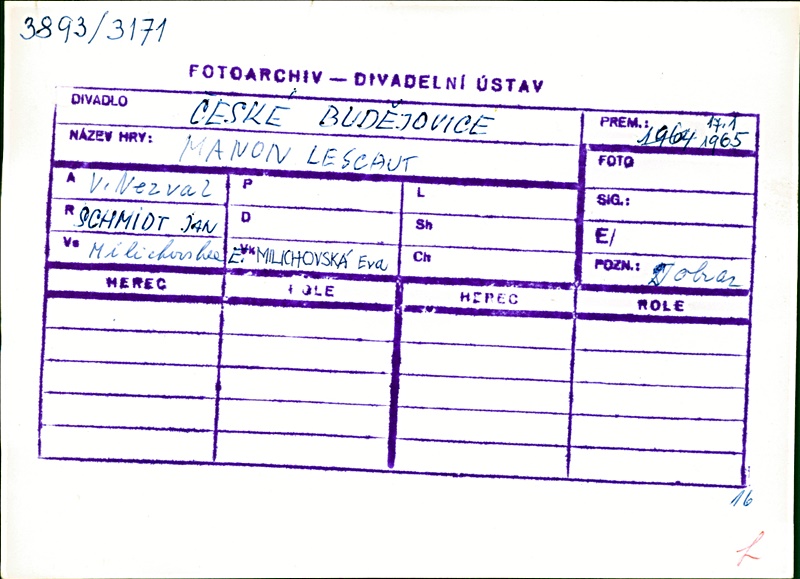 3893/3171
FOTOARCHIV — DIVADELNÍ ÚSTAV
DIVADLO ČESKÉ BUDĚJOVICE
PREM.: 17.1 1964 1965
NÁZEV HRY: MANON LESCAUT
FOTO
A V. Nezval P L
SIG.:
R SCHMIDT JAN D Sh
E/
Vs Milichovská E. Vk MILICHOVSKÁ Eva Ch
POZN.:
HEREC ROLE HEREC ROLE
16